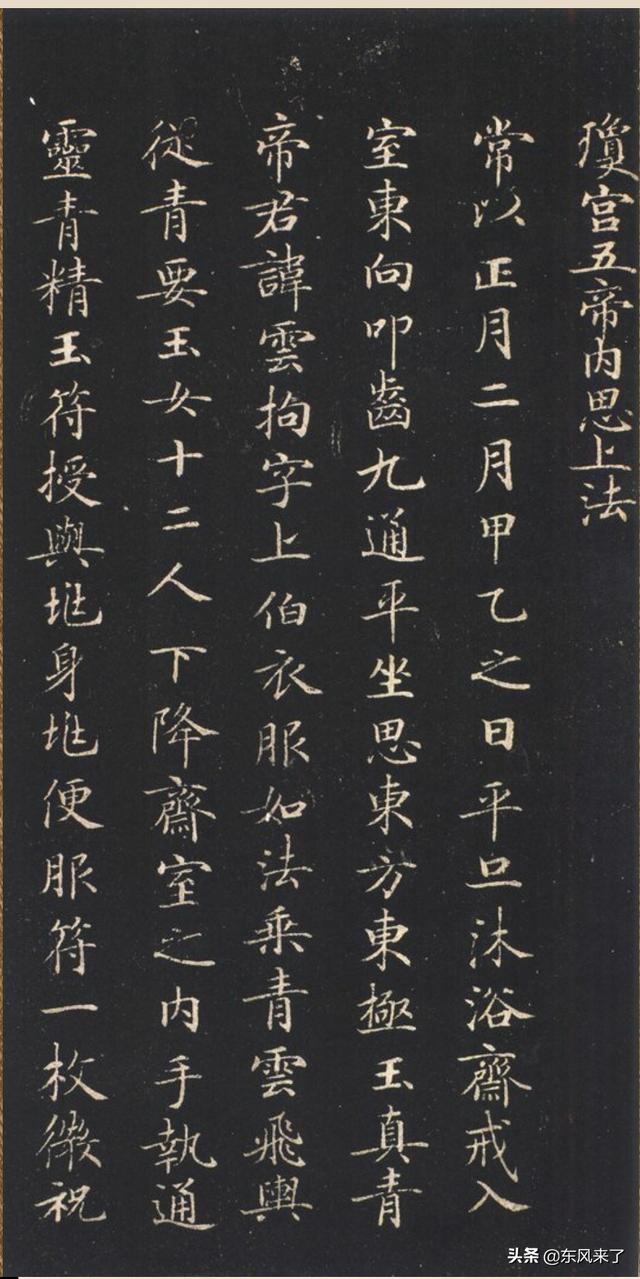 瓊宫五帝内思上法
常以正月二月甲乙之日平旦沐浴齋戒入
室東向叩齒九通平坐思東方東極玉真青
帝君諱雲拘字上伯衣服如法乘青雲飛輿
從青要玉女十二人下降齋室之内手執通
靈青精玉符授與兆身兆便服符一枚微祝
头条 @东风来了